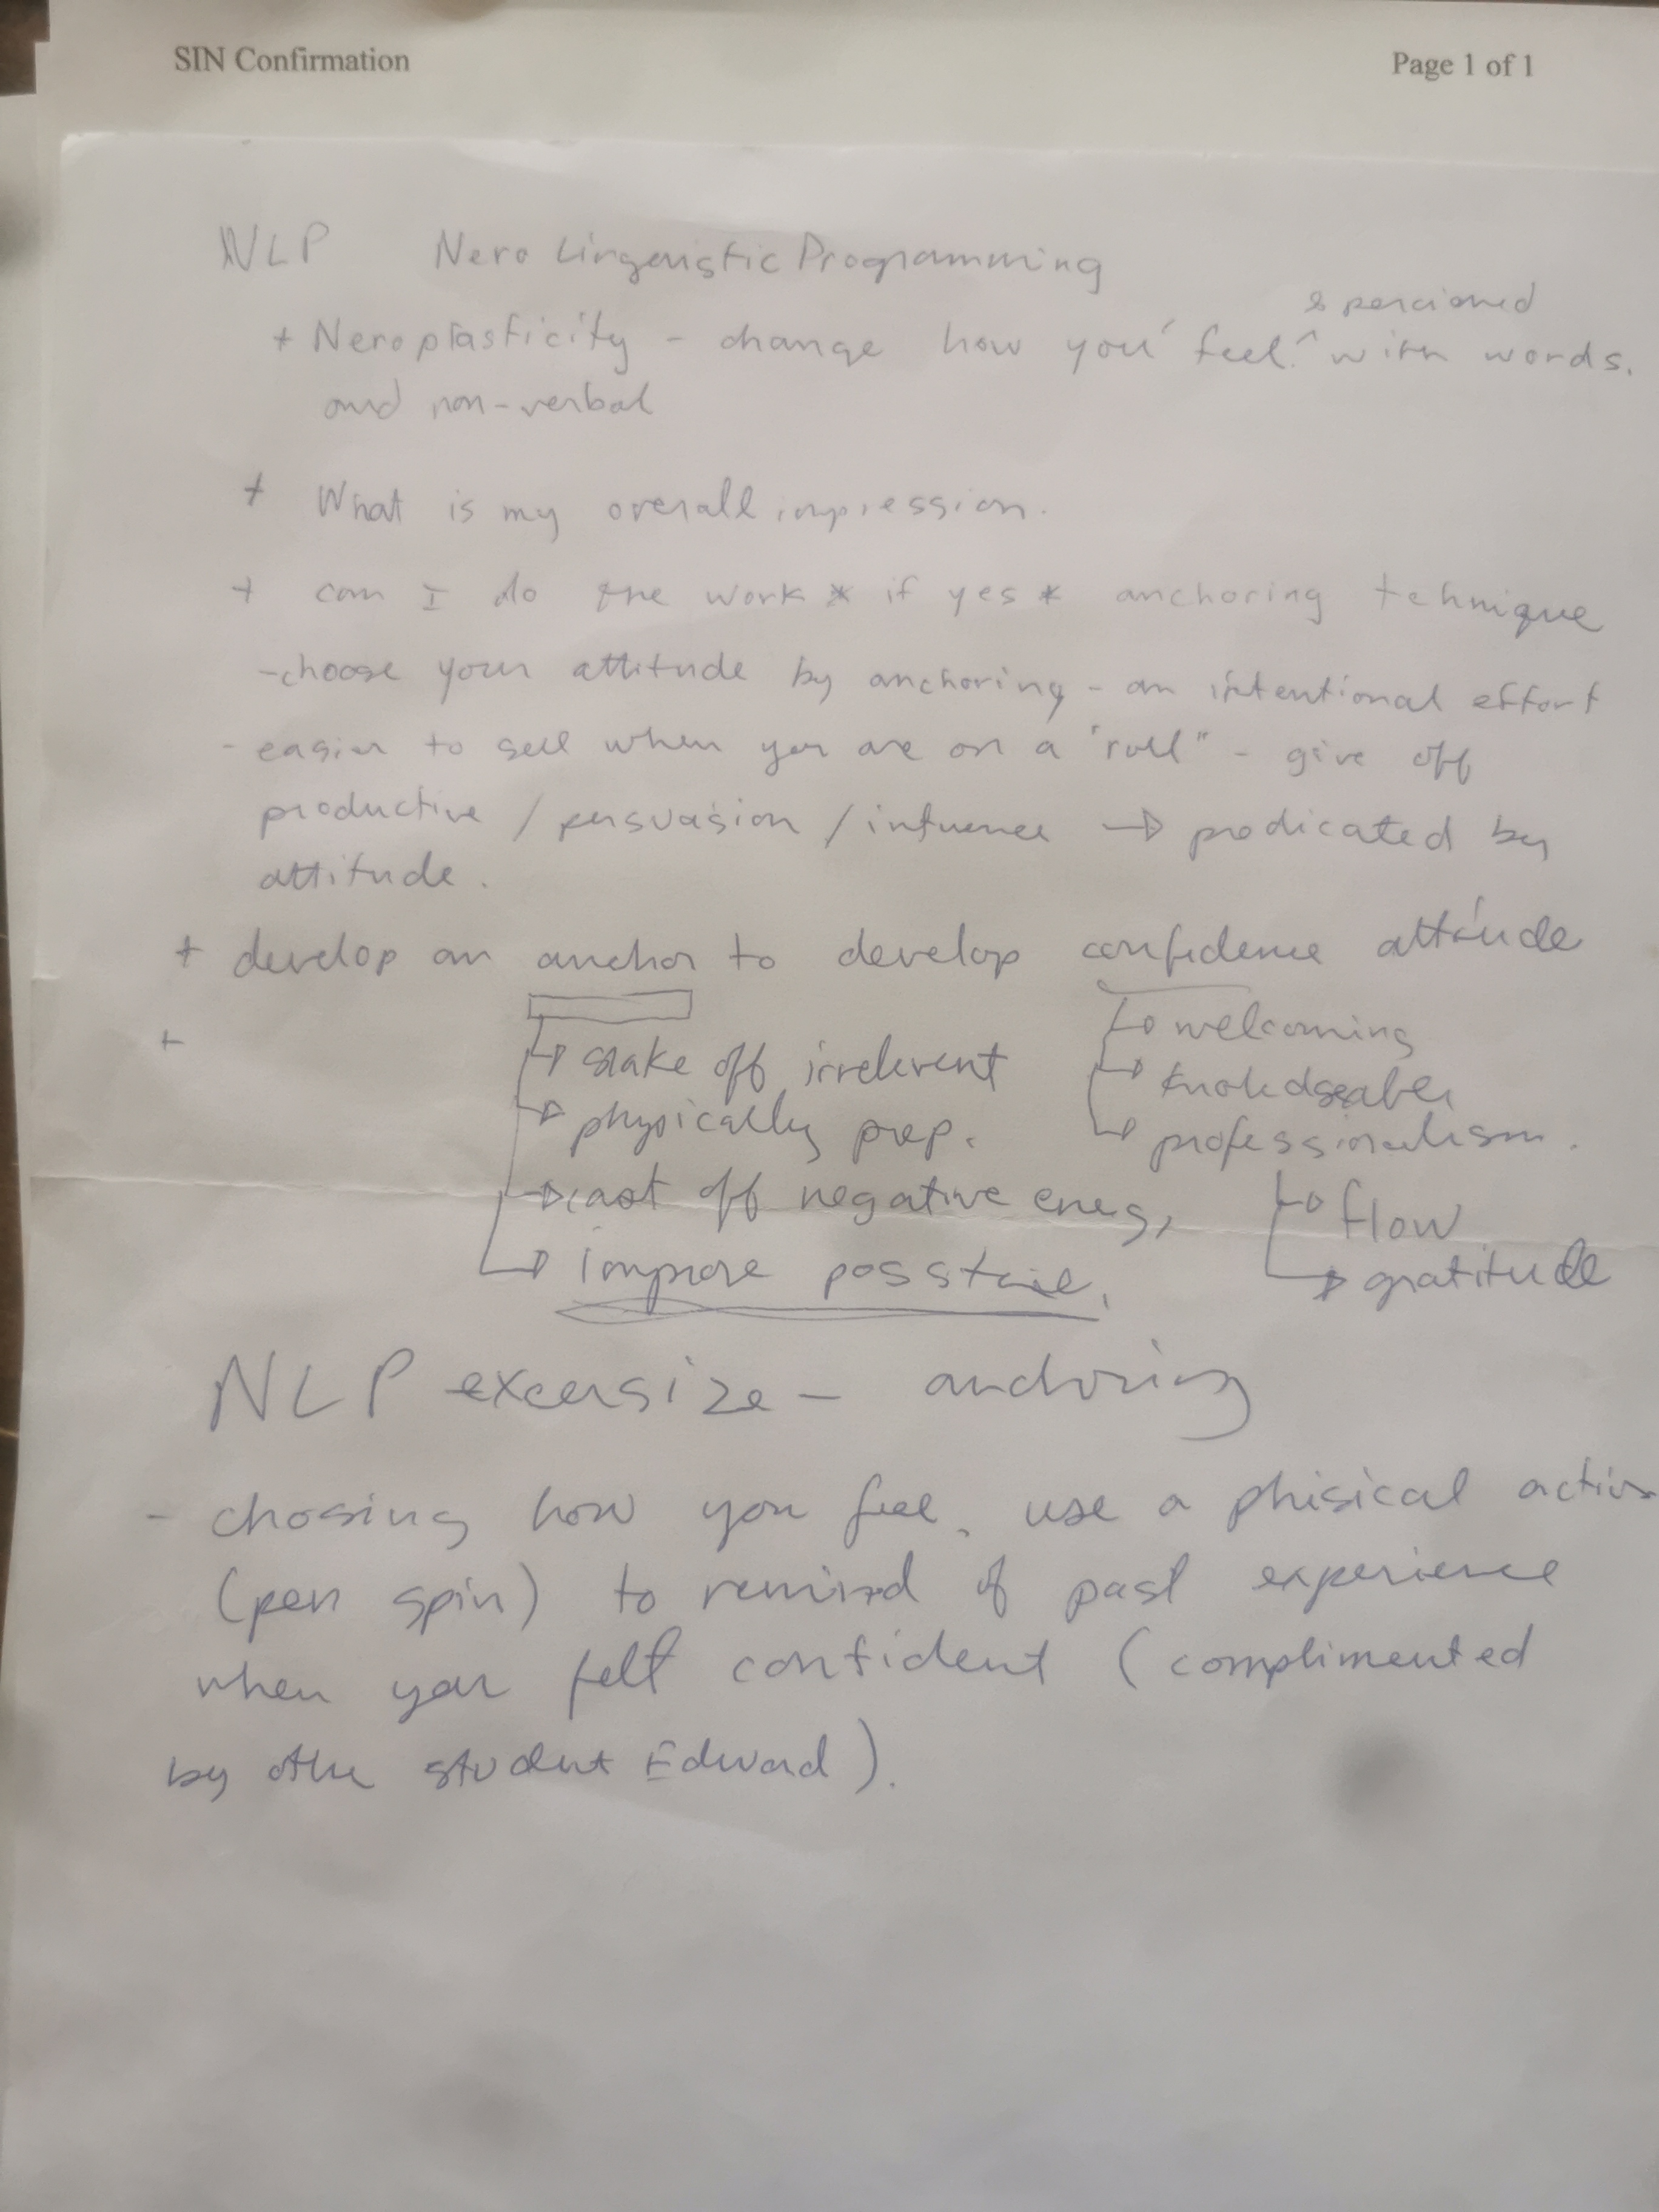 SIN Confirmation Page 1 of 1
NLP Nero Lingeristic Programming
& percioned
+ Neroplasticity - change how you feel ^ with words.
and non-verbal
+ What is my overall impression.
+ can I do the work * if yes * anchoring tehnique
- choose your attitude by anchoring - an intentional effort
- easier to sell when you are on a "roll" - give off
productive / persuasion / infuence → prodicated by
attitude.
+ develop an anchor to develop confidence attitude
→ welcoming
+
→ shake off irrelevent
→ physically prep.
→ professionalism.
→ cast off negative energy
→ flow
→ improve posstuie.
→ gratitude
NLP excersize - anchoring
- chosing how you feel. use a phisical action
(pen spin) to remind of past experience
when you felt confident (complimented
by othe student Edward).